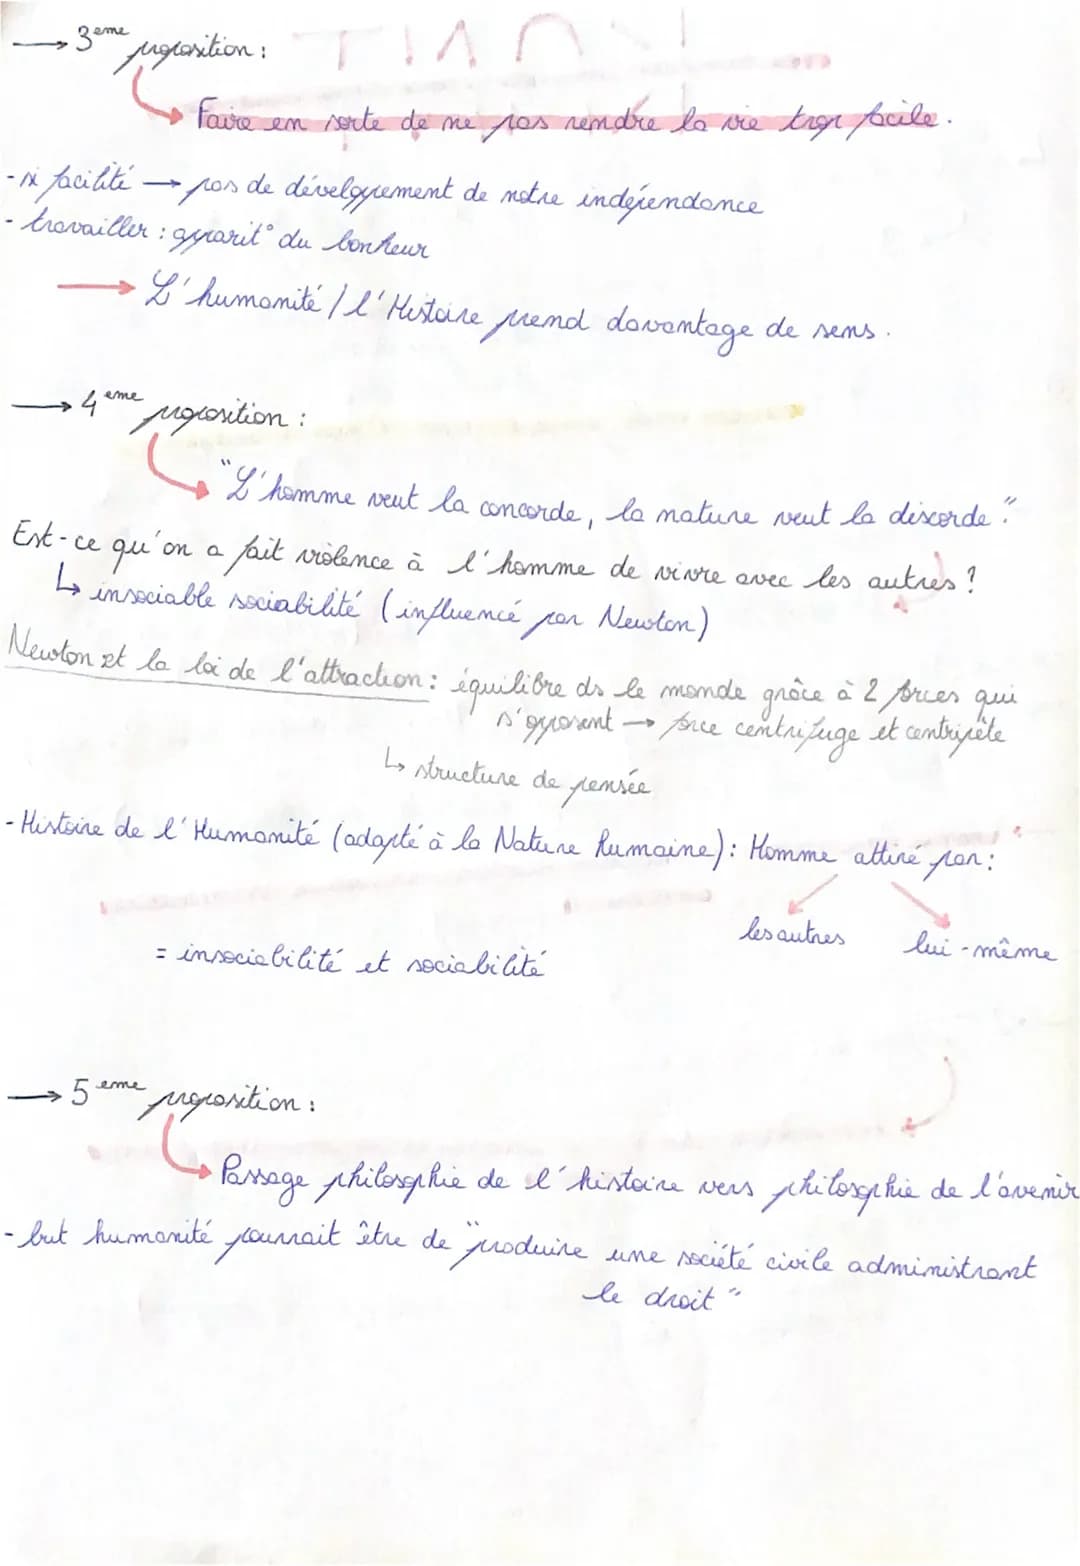 → 3eme proposition :
Faire en sorte de ne pas rendre la vie trop facile.
- si facilité → pas de développement de notre indépendance
- travailler : apparit° du bonheur
→ L'humanité / l'Histoire prend davantage de sens.
→ 4eme proposition :
"L'homme veut la concorde, la nature veut la discorde".
Est-ce qu'on a fait violence à l'homme de vivre avec les autres ?
↳ insociable sociabilité (influencé par Newton)
Newton et la loi de l'attraction : équilibre ds le monde grâce à 2 forces qui
s'opposent → force centrifuge et centripète
↳ structure de pensée
- Histoire de l'Humanité (adapté à la Nature humaine) : Homme attiré par :
les autres lui-même
= insociabilité et sociabilité
→ 5eme proposition :
Passage philosophie de l'histoire vers philosophie de l'avenir
- but humanité pourrait être de "produire une société civile administrant
le droit"